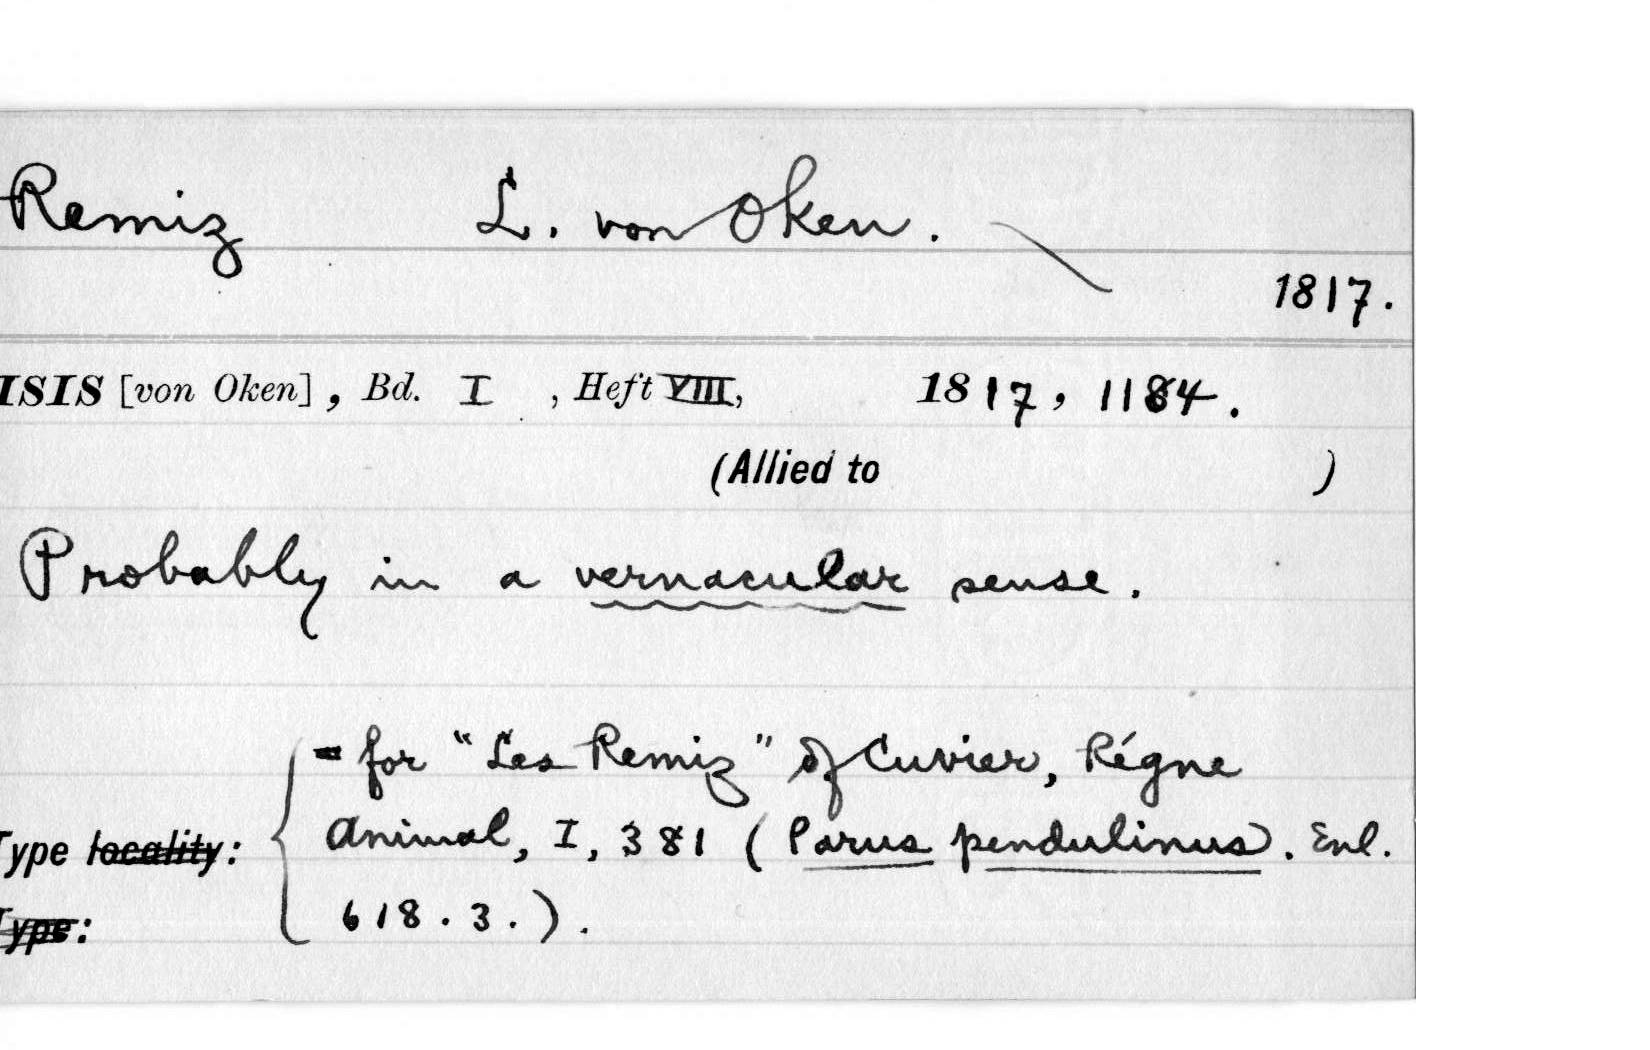 Remiz L. von Oken.
1817.
ISIS [von Oken], Bd. I, Heft VIII, 1817, 1184.
(Allied to )
Probably in a vernacular sense.
= for "Les Remiz" of Cuvier, Régne
Type locality: Animal, I, 381 (Parus pendulinus). Enl.
Type: 618.3.).